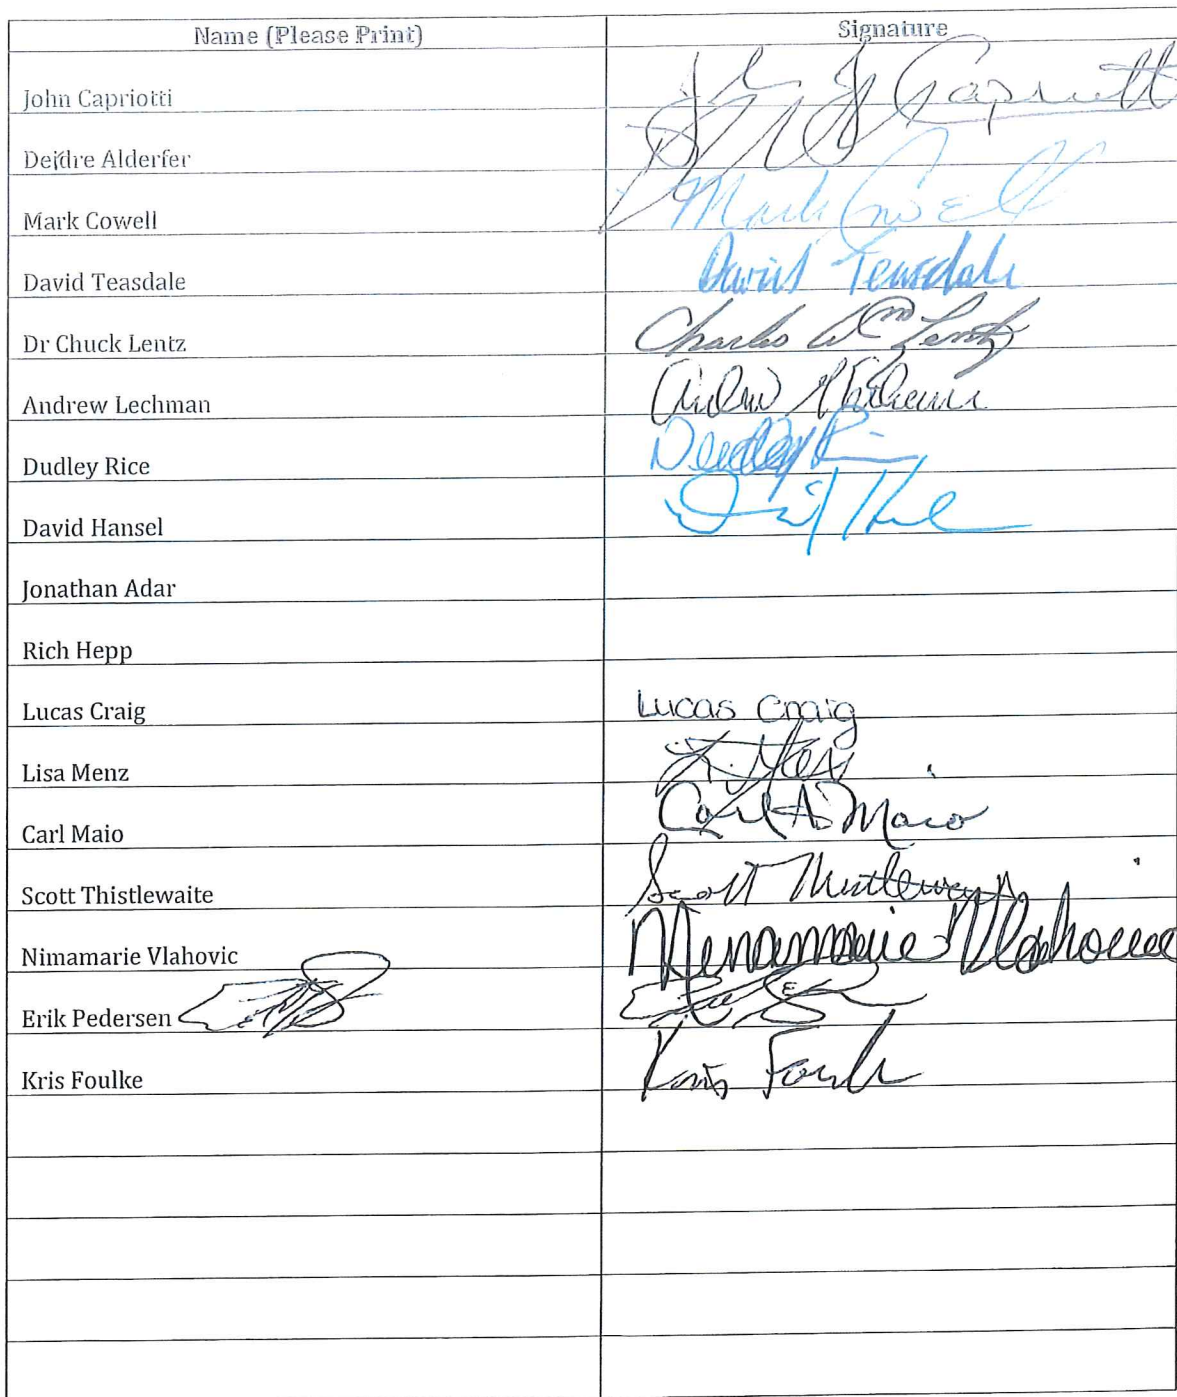 Name (Please Print) Signature
John Capriotti
Deidre Alderfer
Mark Cowell Mark Cowell
David Teasdale David Teasdale
Dr Chuck Lentz Charles Lentz
Andrew Lechman
Dudley Rice Dudley
David Hansel
Jonathan Adar
Rich Hepp
Lucas Craig Lucas Craig
Lisa Menz
Carl Maio Carl A Maio
Scott Thistlewaite Scott
Nimamarie Vlahovic
Erik Pedersen
Kris Foulke Kris